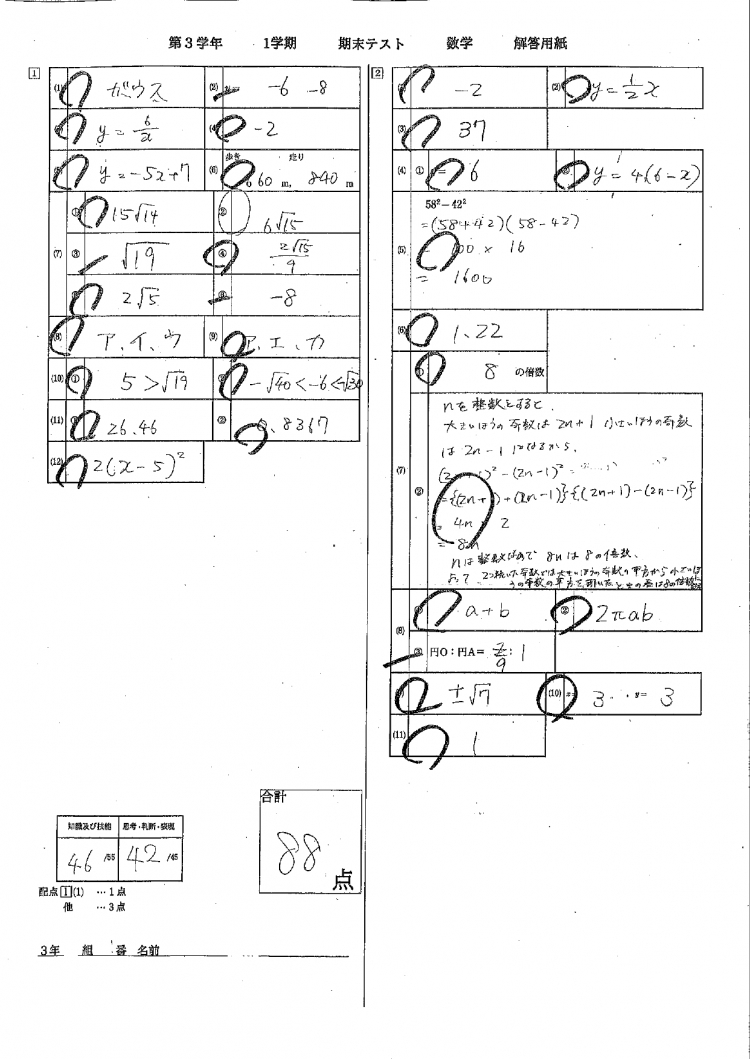 第3学年 1学期 期末テスト 数学 解答用紙
1
(1) ガウス (2) -6 -8
y = 6/x (4) -2
y = -5x+7 (6) 歩き 60 m, 走り 840 m
(7) ① 15√14 ② 6√15
③ √19 ④ 2√15/9
2√5 -8
(8) ア、イ、ウ (9) ア、エ、カ
(10) ① 5 > √19 -√40 < -6 < -√30
(11) 26.46 ② 0.8367
(12) 2(x-5)²
2
-2 (2) y = 1/2 x
(3) 37
(4) ① 6 y = 4(6-x)
(5) 58²-42²
=(58+42)(58-42)
= 100 × 16
= 1600
(6) 1.22
(7) ① 8 の倍数
② nを整数とすると、
大きいほうの奇数は2n+1 小さいほうの奇数
は2n-1になるから、
(2n+1)²-(2n-1)²
={(2n+1)+(2n-1)}{(2n+1)-(2n-1)}
= 4n × 2
= 8n
nは整数なので 8nは8の倍数、
よって 2つ続いた奇数では大きいほうの奇数の平方から小さいほ
うの奇数の平方を引いたときの差は8の倍数
(8) a+b ② 2πab
③ 円O:円A= :1
±√7 (10) x= 3 , y= 3
(11) 1
合計
88 点
知識及び技能 思考・判断・表現
46 /55 42 /45
配点 1(1) …1点
他 …3点
3年 組 番 名前